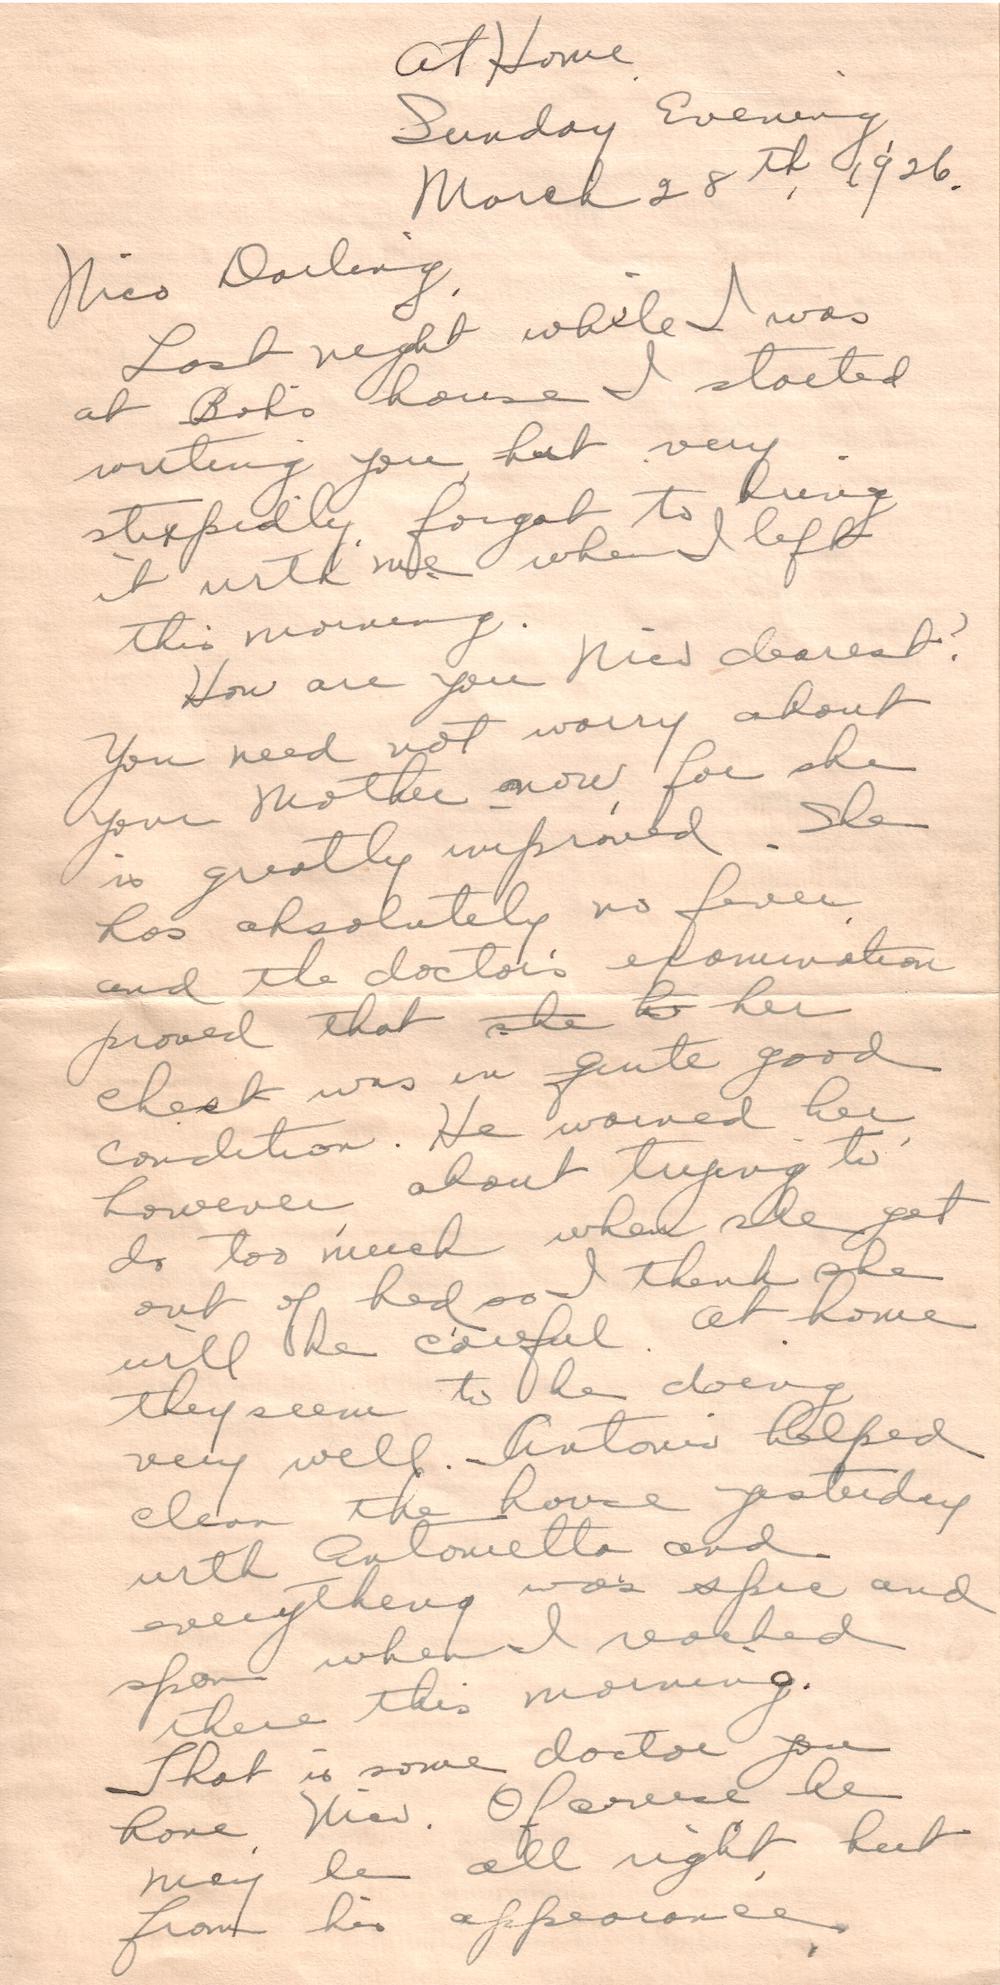 At Home
Sunday Evening
March 28th, 1926.
Nico Darling,
Last night while I was
at Bob's house I started
writing you, but very
stupidly, forgot to bring
it with me when I left
this morning.
How are you Nico dearest?
You need not worry about
your Mother now, for she
is greatly improved. She
has absolutely no fever
and the doctor's examination
proved that she to her
chest was in quite good
condition. He warned her,
however, about trying to
do too much when she got
out of bed so I think she
will be careful. At home
they seem to be doing
very well. Antonio helped
clean the house yesterday
with Antonietta and
everything was spic and
span when I reached
there this morning.
That is some doctor you
have, Nico. Of course he
may be all right, but
from his appearance,